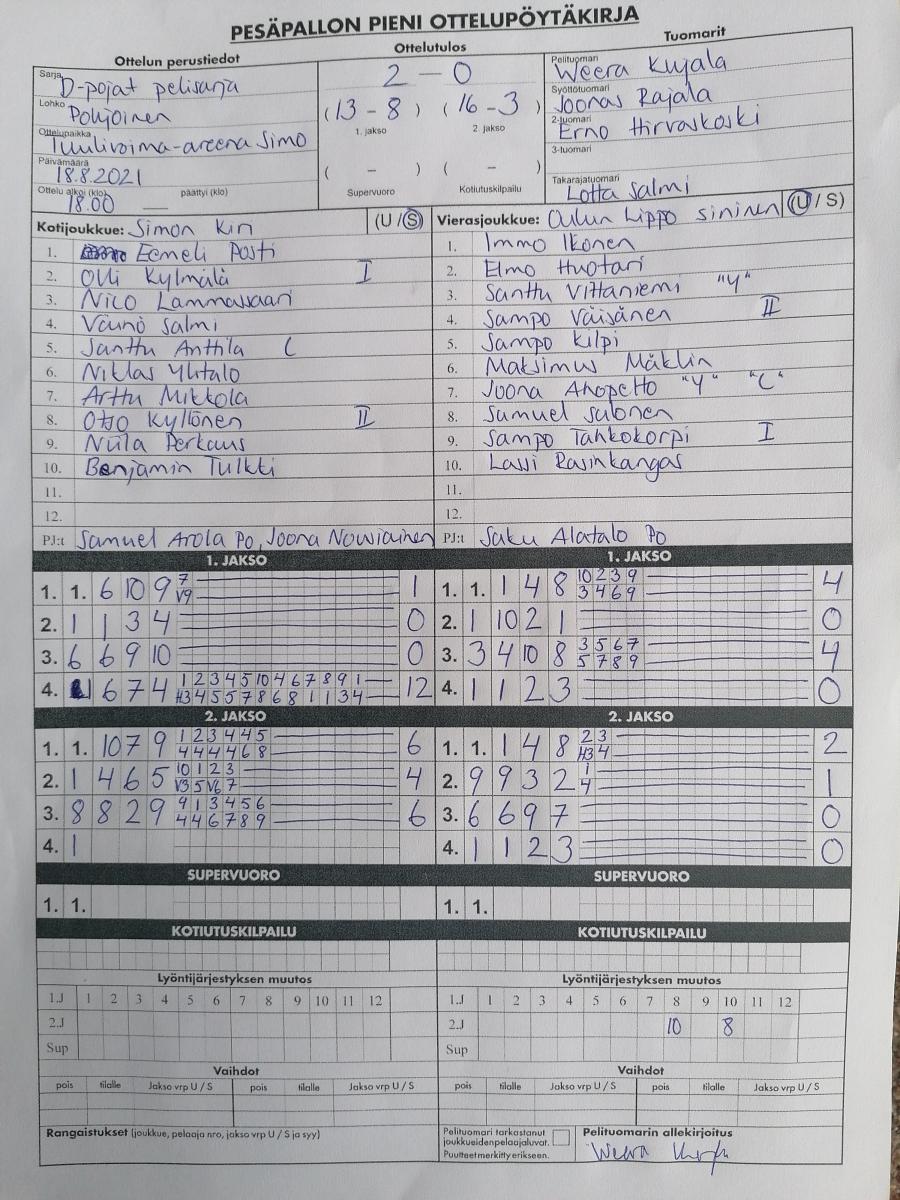 PESÄPALLON PIENI OTTELUPÖYTÄKIRJA
Ottelun perustiedot
Ottelutulos
Tuomarit
Sarja D-pojat pelisarja
Lohko Pohjoinen
Ottelupaikka Tuulivoima-areena Simo
Päivämäärä 18.8.2021
Ottelu alkoi (klo) 18.00 päättyi (klo)
2 - 0
(13 - 8) (16 - 3)
1. jakso 2. jakso
( - ) ( - )
Supervuoro Kotiutuskilpailu
Pelituomari Weera Kujala
Syöttötuomari Joonas Rajala
2-tuomari Erno Hirvaskoski
3-tuomari
Takarajatuomari Lotta Salmi
Kotijoukkue: Simon Kiri (U/S)
1. Eemeli Posti
2. Olli Kylmälä I
3. Nico Lammassaari
4. Väinö Salmi
5. Santtu Anttila C
6. Niklas Ylitalo
7. Arttu Mikkola
8. Otso Kyllönen II
9. Niila Perkaus
10. Benjamin Tulkki
11.
12.
PJ:t Samuel Arola Po, Joona
Vierasjoukkue: Oulun Lippo sininen (U/S)
1. Immo Ikonen
2. Elmo Huotari
3. Santtu Viitaniemi "Y"
4. Sampo Väisänen II
5. Sampo Kilpi
6. Maksimus Mäklin
7. Joona Ahopelto "Y" "C"
8. Samuel Salonen
9. Sampo Tahkokorpi I
10. Lassi Rasinkangas
11.
12.
PJ:t Saku Alatalo Po
1. JAKSO
1. 1. 6 10 9 7 1
V9
2. 1 1 3 4 0
3. 6 6 9 10 0
4. 1 6 7 4 1 2 3 4 5 10 4 6 7 8 9 1 12
H3 4 5 5 7 8 6 8 1 1 3 4
1. JAKSO
1. 1. 1 4 8 10 2 3 9 4
3 4 6 9
2. 1 10 2 1 0
3. 3 4 10 8 3 5 6 7 4
5 7 8 9
4. 1 1 2 3 0
2. JAKSO
1. 1. 10 7 9 1 2 3 4 4 5 6
4 4 4 4 6 8
2. 1 4 6 5 10 1 2 3 4
V3 5 V6 7
3. 8 8 2 9 9 1 3 4 5 6 6
4 4 6 7 8 9
4. 1
2. JAKSO
1. 1. 1 4 8 2 3 2
H3 4
2. 9 9 3 2 1 1
4
3. 6 6 9 7 0
4. 1 1 2 3 0
SUPERVUORO
1. 1.
SUPERVUORO
1. 1.
KOTIUTUSKILPAILU
KOTIUTUSKILPAILU
Lyöntijärjestyksen muutos
1.J 1 2 3 4 5 6 7 8 9 10 11 12
2.J
Sup
Lyöntijärjestyksen muutos
1.J 1 2 3 4 5 6 7 8 9 10 11 12
2.J 10 8
Sup
Vaihdot
pois tilalle Jakso vrp U / S pois tilalle Jakso vrp U / S
Vaihdot
pois tilalle Jakso vrp U / S pois tilalle Jakso vrp U / S
Rangaistukset (joukkue, pelaaja nro, jakso vrp U / S ja syy)
Pelituomari tarkastanut
joukkueidenpelaajaluvat.
Puutteet merkitty erikseen.
Pelituomarin allekirjoitus
Weera